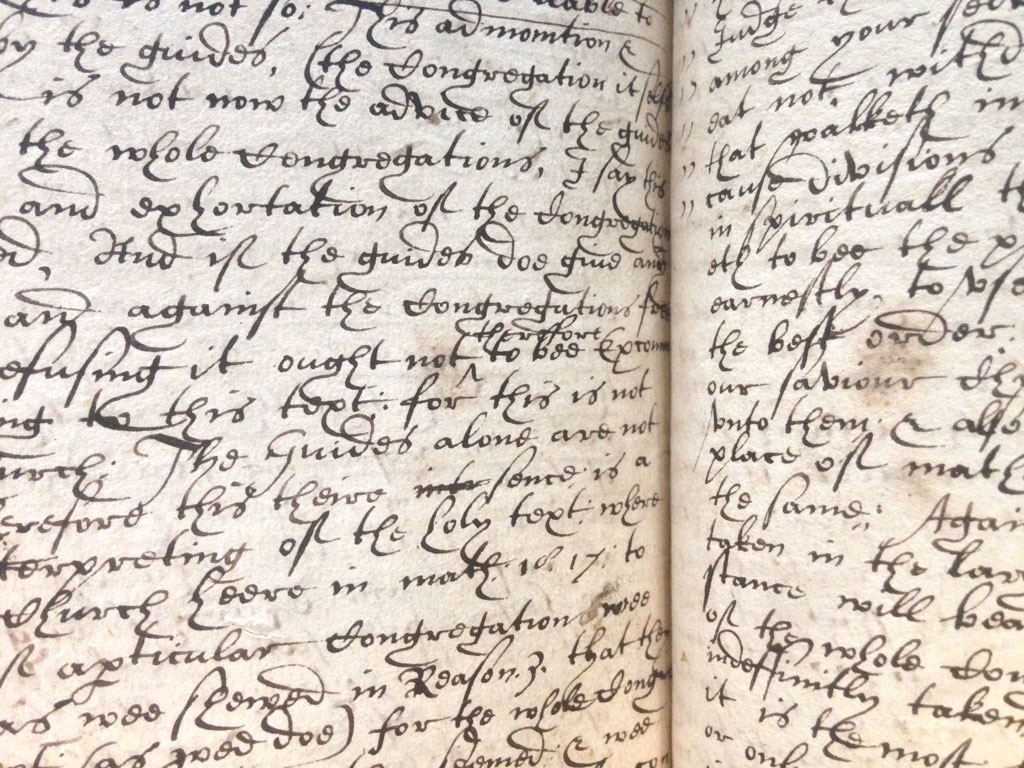 not so: This admonition &
by the guides, (the Congregation it selfe
is not now the advice of the guides
the whole Congregations, I say this
and exhortation of the Congregation
And if the guides doe give and
and against the Congregations free
efusing it ought not therefore to bee Excom
ing to this text: for this is not
urch: The Guides alone are not
erefore this theire sence is a
terpreting of the holy text: where
Church heere in math. 18. 17. to
a particular Congregation wee
as wee shewed in Reason. 3. that the
(as wee doe) for the whole Congr
seemed: & wee
" Judge
" among your
" eat not, with
" that walketh in
" cause divisions
" in spirituall
eth to bee the
earnestly, to use
the best order.
our saviour Ch
unto them: & also
place of math
the same: Again
token in the lar
stance will bear
of the whole Con
indeffinitly taken
it is the most
or onl